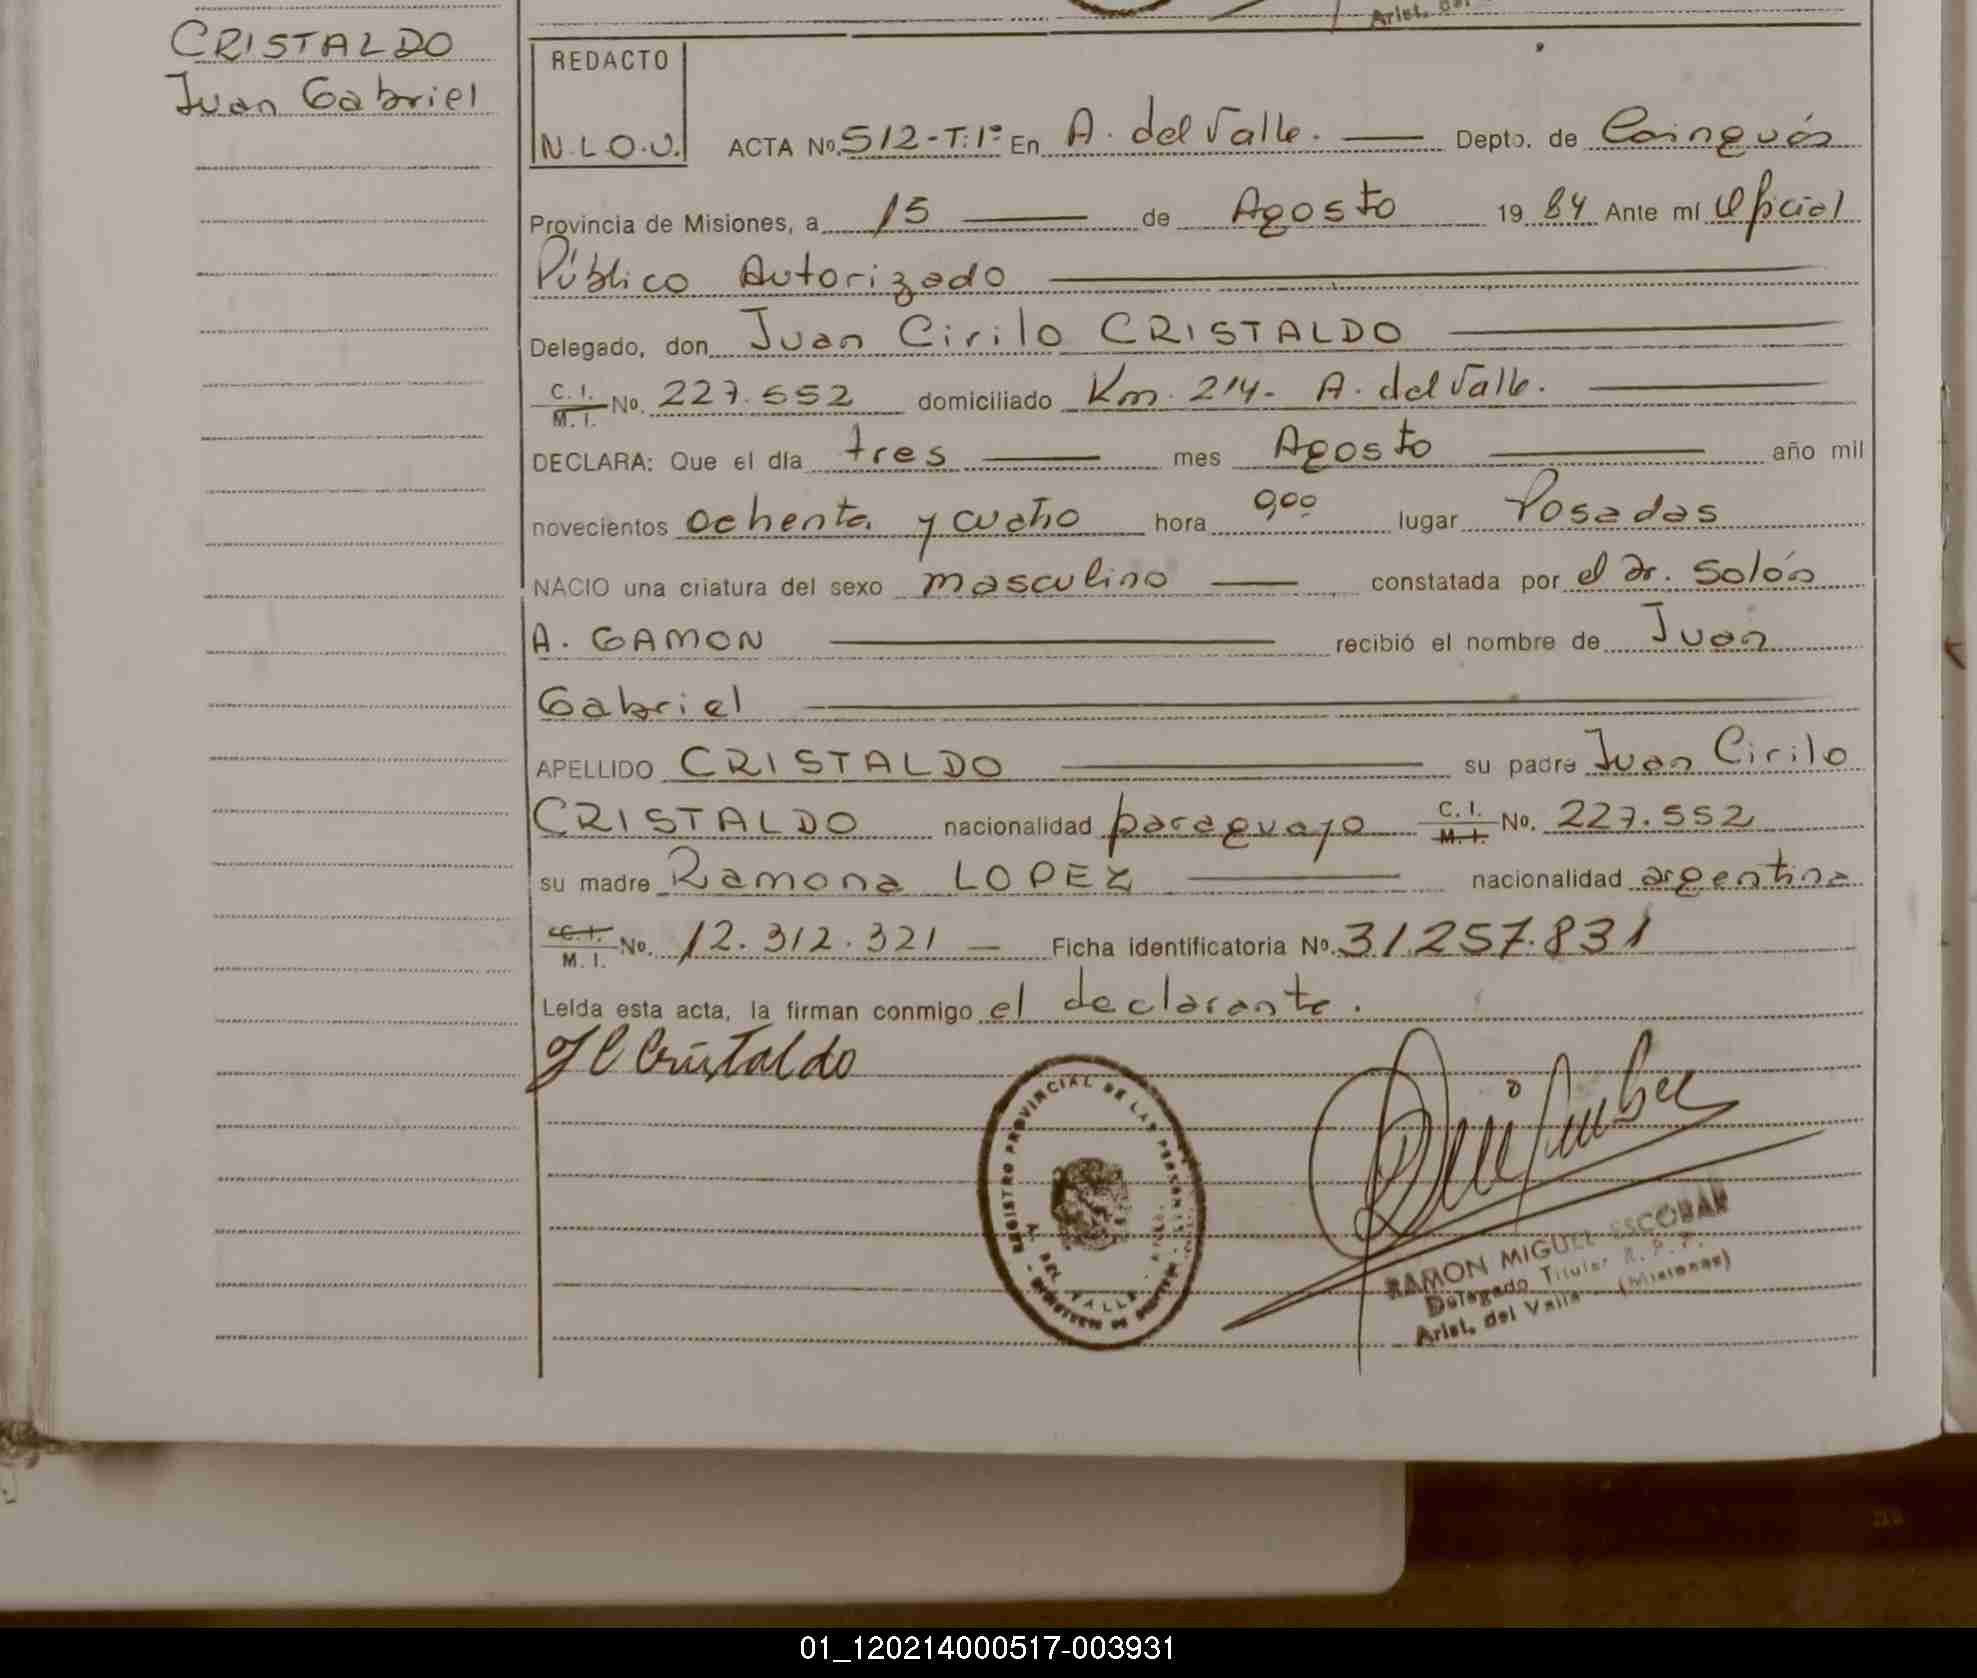 Arist. del
CRISTALDO
Juan Gabriel
REDACTO
N.L.O.U.
ACTA No. 512-T:1º En A. del Valle. Depto. de Cainguás
Provincia de Misiones, a 15 de Agosto 19 84 Ante mí Oficial
Público Autorizado
Delegado, don Juan Cirilo CRISTALDO
C. I. M. I. No. 227.552 domiciliado Km. 214- A. del Valle.
DECLARA: Que el día tres mes Agosto año mil
novecientos ochenta y cuatro hora 9,00 lugar Posadas
NACIO una criatura del sexo masculino constatada por el Dr. Solón
A. GAMON recibió el nombre de Juan
Gabriel
APELLIDO CRISTALDO su padre Juan Cirilo
CRISTALDO nacionalidad paraguayo C. I. M. I. No. 227.552
su madre Ramona LOPEZ nacionalidad argentina
C. I. M. I. No. 12.312.321 — Ficha identificatoria No. 31.257.831
Leída esta acta, la firman conmigo el declarante.
J C Cristaldo
REGISTRO PROVINCIAL DE LAS PERSONAS
A. DEL VALLE
RAMON MIGUEL ESCOBAR
Delegado Titular R. P. P.
Arist. del Valle (Misiones)
01_120214000517-003931